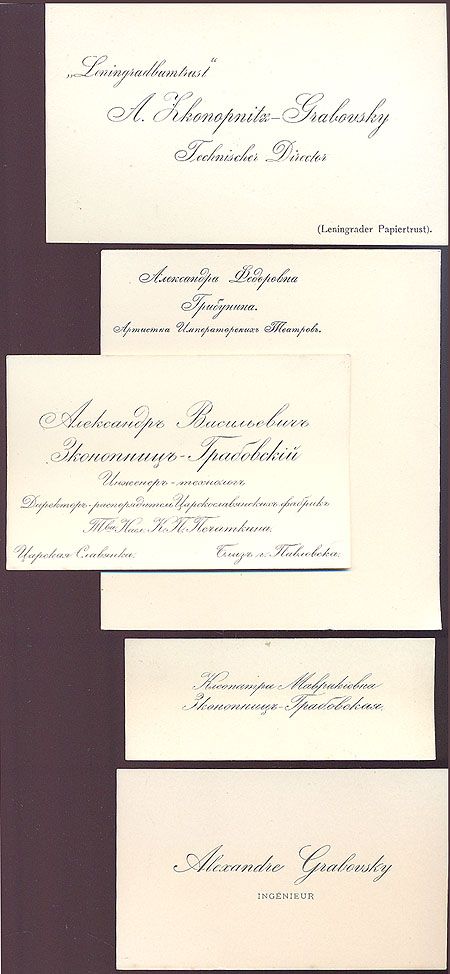 „Leningradbumtrust“
A. Zkonopnitz-Grabovsky
Technischer Director
(Leningrader Papiertrust).
Александра Ѳедоровна
Трибунина.
Артистка Императорскихъ Театровъ.
Александръ Васильевичъ
Экономницъ-Грабовскій
Инженеръ-технологъ
Директоръ-распорядитель Царскославянскихъ фабрикъ
Т-ва Насл. К. П. Печаткина.
Царская Славянка.
Близъ г. Павловска.
Клеопатра Маврикіевна
Экономницъ-Грабовская.
Alexandre Grabovsky
INGÉNIEUR